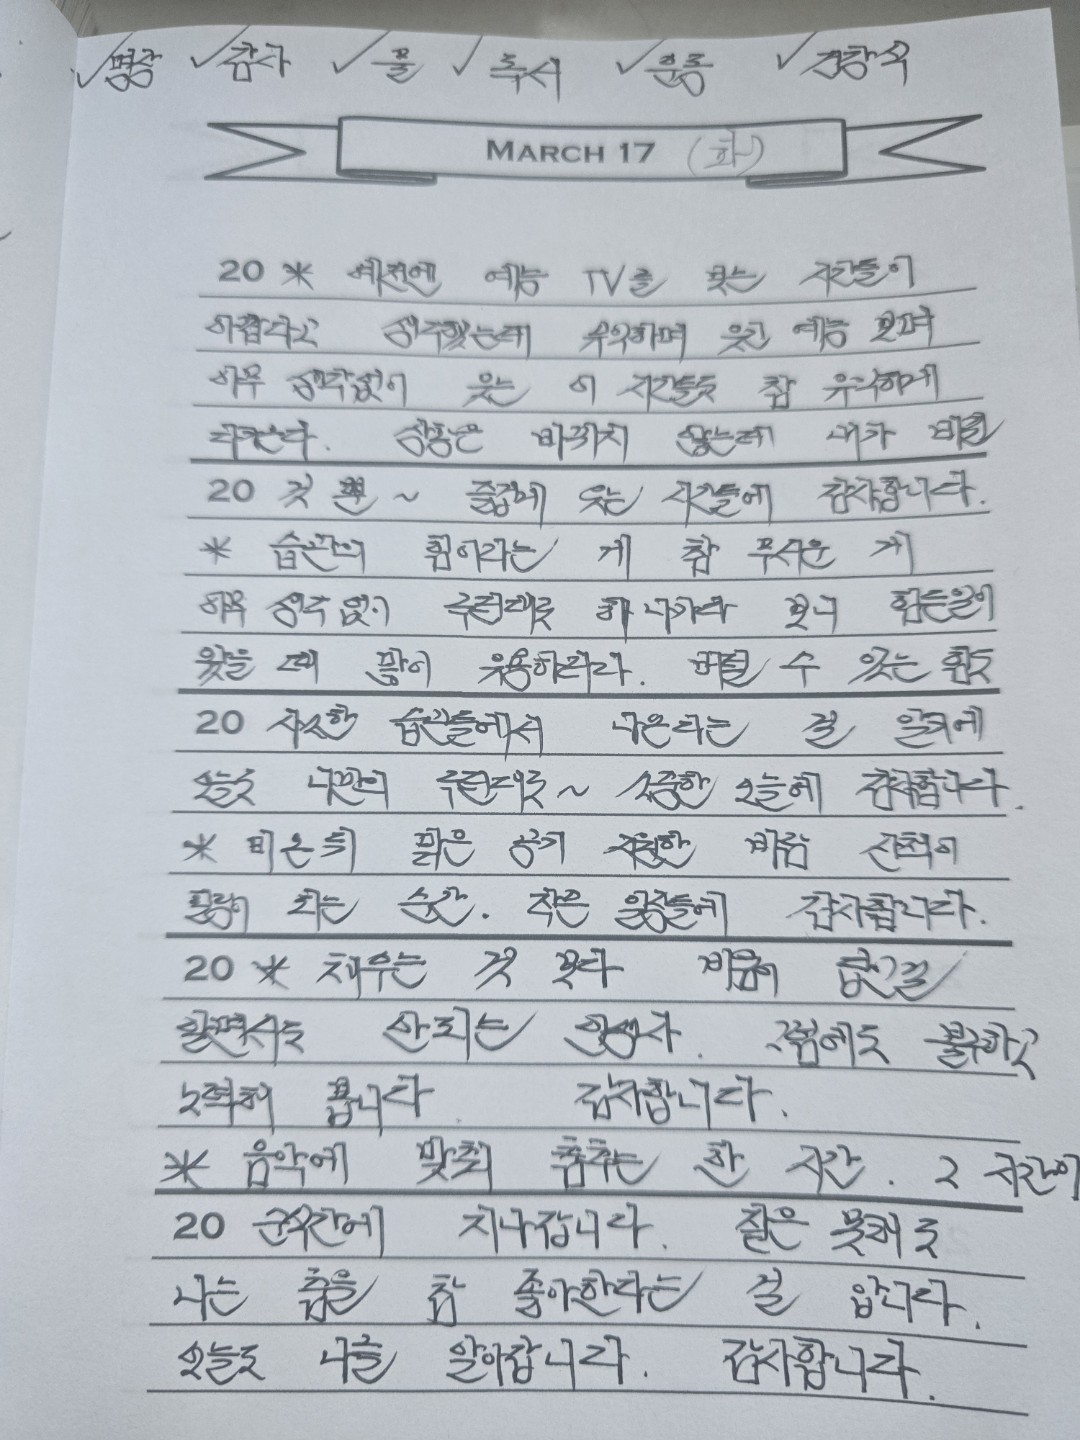 ✓명상 ✓감사 ✓물 ✓독서 ✓운동 ✓건강식
MARCH 17 (화)
20 * 예전엔 예능 TV를 보는 시간들이
아깝다고 생각했는데 수익하며 웃긴 예능 보며
아무 생각없이 웃는 이 시간들도 참 유익하게
다가온다. 상황은 바뀌지 않는데 내가 바뀐
20 것 뿐~ 즐겁게 웃는 시간들에 감사합니다.
* 습관의 힘이라는 게 참 무서운 게
아무 생각 없이 루틴대로 해 나가다 보니 힘든일이
왔을 때 많이 유용하더라. 버틸 수 있는 힘도
20 사소한 습관들에서 나온다는 걸 알기에
오늘도 나만의 루틴대로~ 소중한 오늘에 감사합니다.
* 비온 뒤 맑은 공기 시원한 바람 산책이
힐링이 되는 순간. 작은 일상들에 감사합니다.
20 * 채우는 것 보다 비움이 답인걸
알면서도 안되는 인생사. 그럼에도 불구하고
노력해 봅니다. 감사합니다.
* 음악에 맞춰 춤추는 한 시간. 그 시간이
20 순식간에 지나갑니다. 잘은 못해도
나는 춤을 참 좋아한다는 걸 압니다.
오늘도 나를 알아갑니다. 감사합니다.